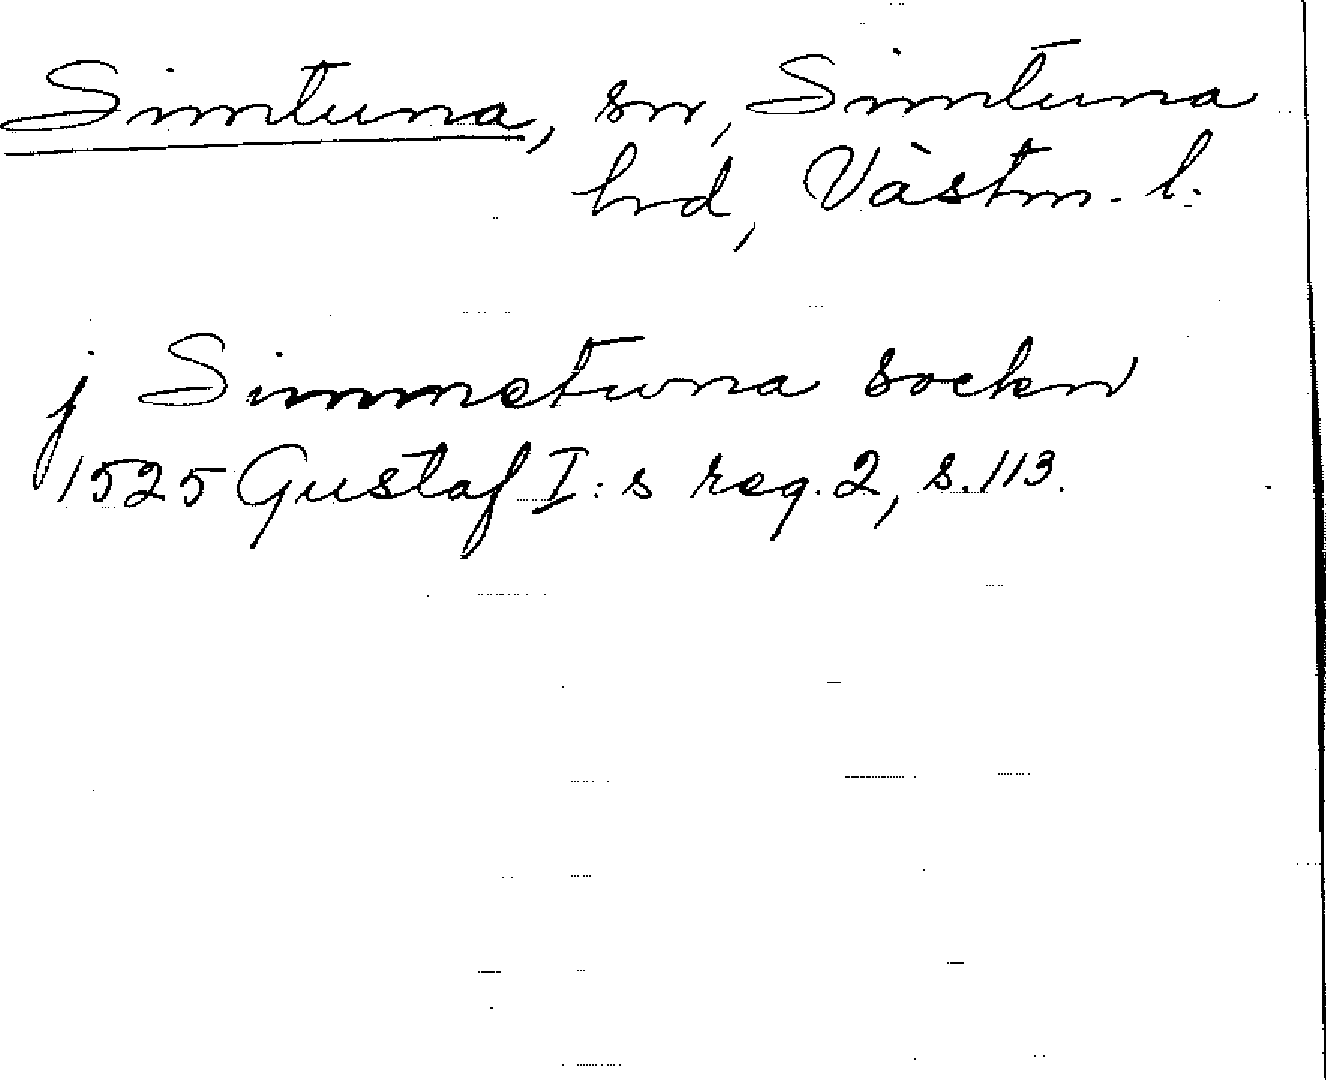 Simtuna, sn, Simtuna
hrd, Västm. l.
j Simmetuna sockn
1525 Gustaf I:s reg. 2, s. 113.